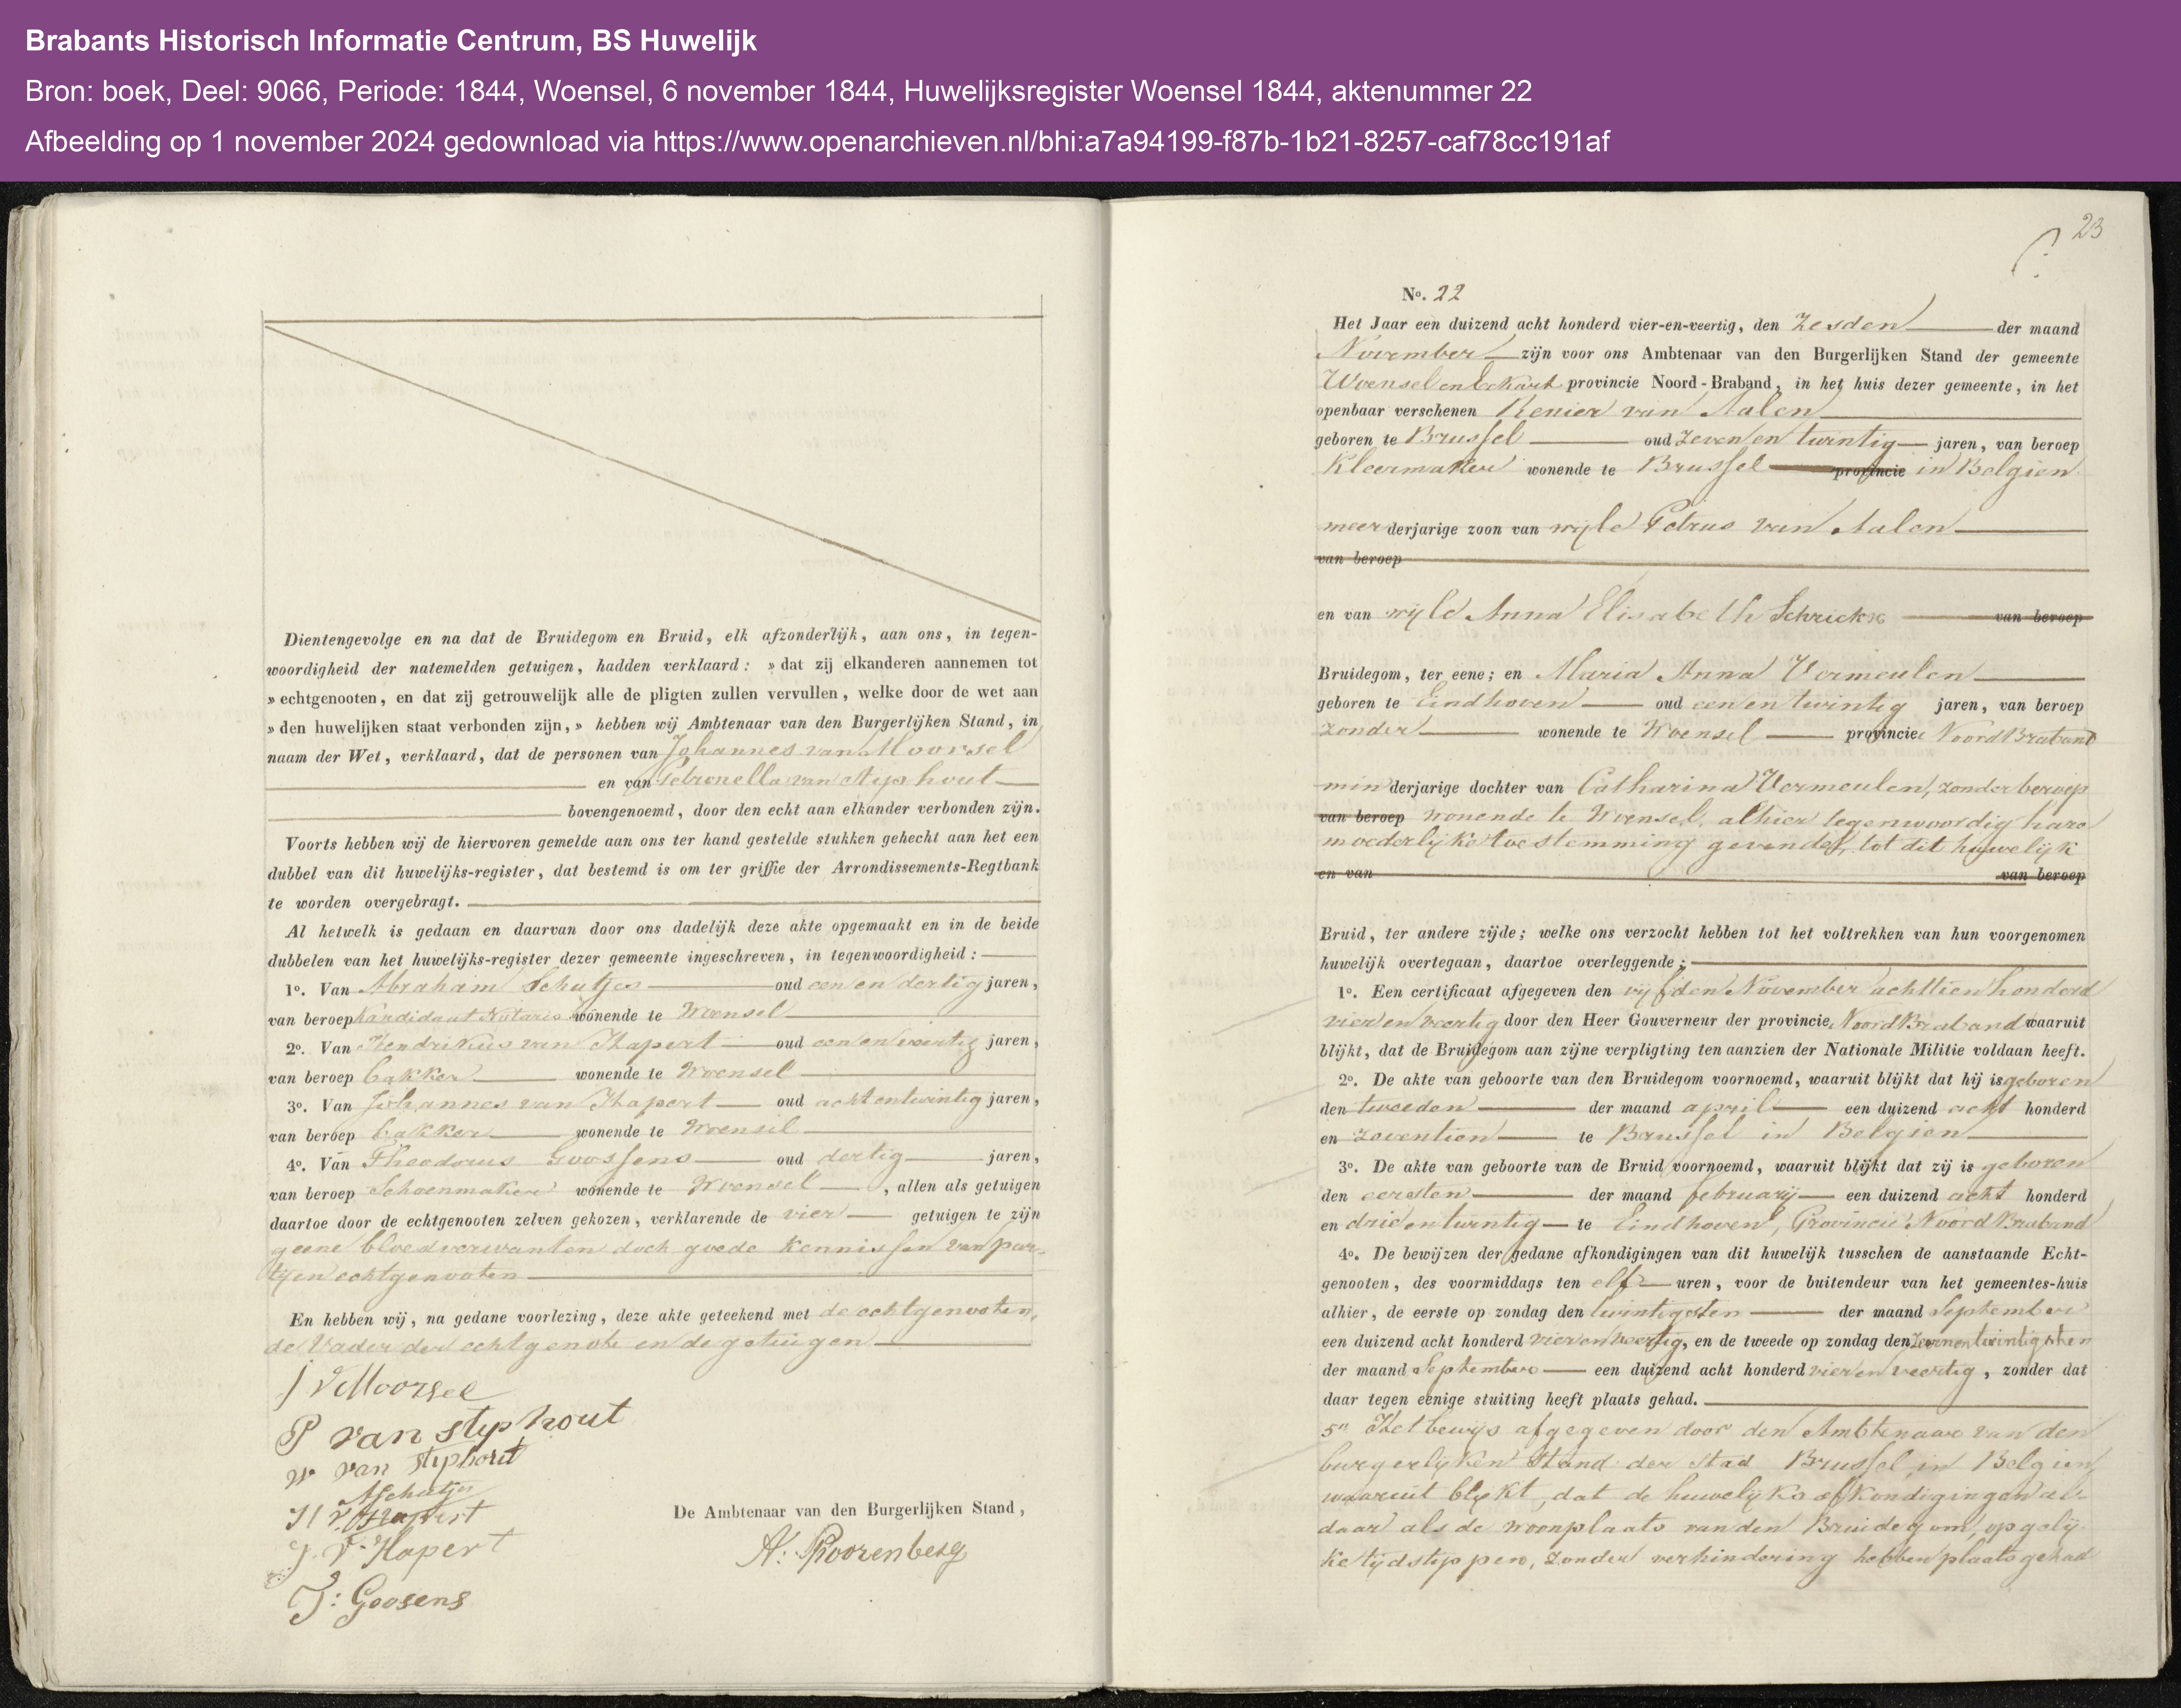 Brabants Historisch Informatie Centrum, BS Huwelijk
Bron: boek, Deel: 9066, Periode: 1844, Woensel, 6 november 1844, Huwelijksregister Woensel 1844, aktenummer 22
Afbeelding op 1 november 2024 gedownload via https://www.openarchieven.nl/bhi:a7a94199-f87b-1b21-8257-caf78cc191af
Dientengevolge en na dat de Bruidegom en Bruid, elk afzonderlijk, aan ons, in tegen-
woordigheid der natemelden getuigen, hadden verklaard: » dat zij elkanderen aannemen tot
» echtgenooten, en dat zij getrouwelijk alle de pligten zullen vervullen, welke door de wet aan
» den huwelijken staat verbonden zijn, » hebben wij Ambtenaar van den Burgerlijken Stand, in
naam der Wet, verklaard, dat de personen van Johannes van Moorsel
en van Petronella van Stiphout
bovengenoemd, door den echt aan elkander verbonden zijn.
Voorts hebben wij de hiervoren gemelde aan ons ter hand gestelde stukken gehecht aan het een
dubbel van dit huwelijks-register, dat bestemd is om ter griffie der Arrondissements-Regtbank
te worden overgebragt.
Al hetwelk is gedaan en daarvan door ons dadelijk deze akte opgemaakt en in de beide
dubbelen van het huwelijks-register dezer gemeente ingeschreven, in tegenwoordigheid:
1o. Van Abraham Schutjes oud een en dertig jaren,
van beroep Kandidaat Notaris wonende te Woensel
2o. Van Hendrikus van Hapert oud een en veertig jaren,
van beroep bakker wonende te Woensel
3o. Van Johannes van Hapert oud achtentwintig jaren,
van beroep bakker wonende te Woensel
4o. Van Theodorus Goossens oud dertig jaren,
van beroep Schoenmaker wonende te Woensel, allen als getuigen
daartoe door de echtgenooten zelven gekozen, verklarende de vier getuigen te zijn
geene bloedverwanten doch goede kennissen van par-
tijen echtgenooten
En hebben wij, na gedane voorlezing, deze akte geteekend met de echtgenooten,
de Vader der echtgenote en de getuigen
J V Moorsel
P van stiphout
W van stiphout
ASchutjes
H V Hapert
J. V. Hapert
T: Goosens
De Ambtenaar van den Burgerlijken Stand,
A: Roorenberg
23
No. 22
Het Jaar een duizend acht honderd vier-en-veertig, den Zesden der maand
November zijn voor ons Ambtenaar van den Burgerlijken Stand der gemeente
Woensel en Eckart provincie Noord-Braband, in het huis dezer gemeente, in het
openbaar verschenen Renier van Aalen
geboren te Brussel oud zeven en twintig jaren, van beroep
Kleermaker wonende te Brussel provincie in Belgien
meerderjarige zoon van wijle Petrus van Aalen
van beroep
en van wijle Anna Elisabeth Schrickx van beroep
Bruidegom, ter eene; en Maria Anna Vermeulen
geboren te Eindhoven oud een en twintig jaren, van beroep
zonder wonende te Woensel provincie Noord Braband
minderjarige dochter van Catharina Vermeulen, zonder beroep
van beroep wonende te Woensel, alhier tegenwoordig hare
moederlijke toestemming gevende, tot dit huwelijk
en van van beroep
Bruid, ter andere zijde; welke ons verzocht hebben tot het voltrekken van hun voorgenomen
huwelijk overtegaan, daartoe overleggende;
1o. Een certificaat afgegeven den vijfden November achttien honderd
vier en veertig door den Heer Gouverneur der provincie Noord Braband waaruit
blijkt, dat de Bruidegom aan zijne verpligting ten aanzien der Nationale Militie voldaan heeft.
2o. De akte van geboorte van den Bruidegom voornoemd, waaruit blijkt dat hij is geboren
den tweeden der maand april een duizend acht honderd
en zeventien te Brussel in Belgien
3o. De akte van geboorte van de Bruid voornoemd, waaruit blijkt dat zij is geboren
den eersten der maand february een duizend acht honderd
en drie en twintig te Eindhoven, Provincie Noord Braband
4o. De bewijzen der gedane afkondigingen van dit huwelijk tusschen de aanstaande Echt-
genooten, des voormiddags ten elf uren, voor de buitendeur van het gemeentes-huis
alhier, de eerste op zondag den twintigsten der maand September
een duizend acht honderd vier en veertig, en de tweede op zondag den zevenentwintigsten
der maand September een duizend acht honderd vier en veertig, zonder dat
daar tegen eenige stuiting heeft plaats gehad.
5o Het bewijs afgegeven door den Ambtenaar van den
burgerlyken Stand der Stad Brussel in Belgien,
waaruit blykt, dat de huwelyks afkondigingen al-
daar als de woonplaats van den Bruidegom, op gely-
ke tydstippen, zonder verhindering hebben plaats gehad